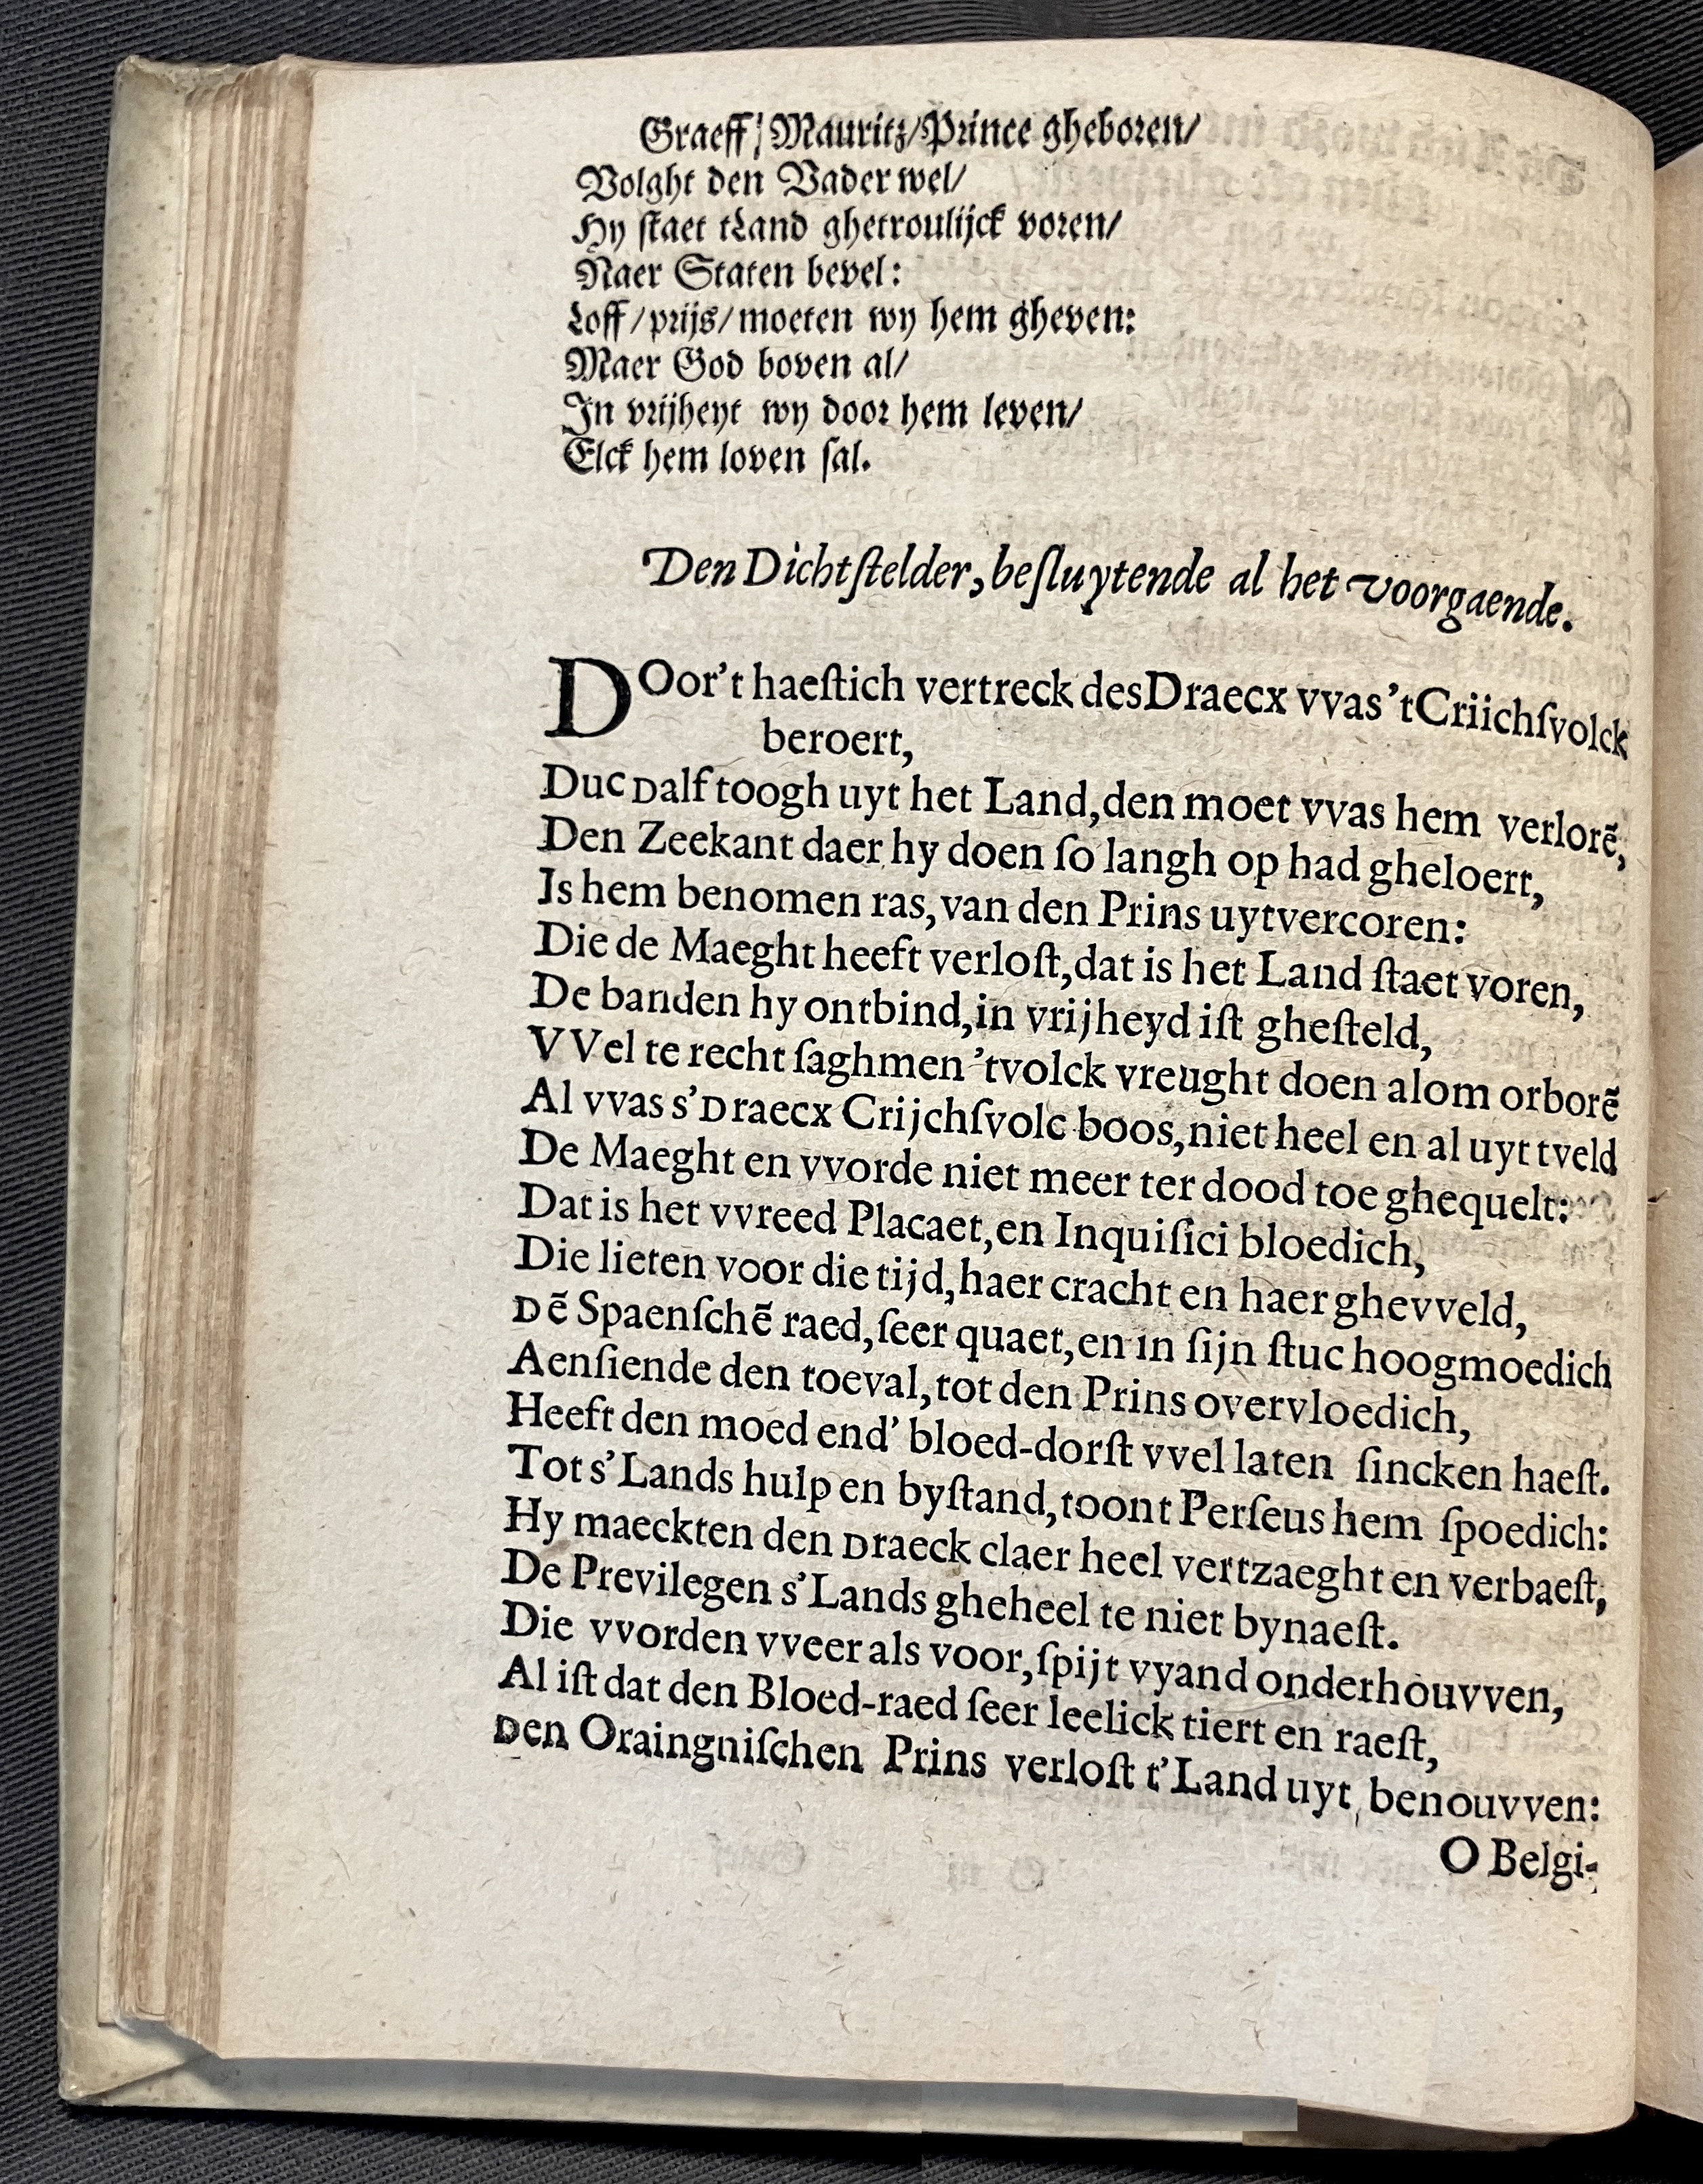 Graeff/Mauritz/Prince gheboren/
Volght den Vader wel/
Hy staet tLand ghetroulijck voren/
Naer Staten bevel:
Loff/prijs/moeten wy hem gheven:
Maer God boven al/
In vrijheyt wy door hem leven/
Elck hem loven sal.
Den Dichtſtelder, beſluytende al het voorgaende.
DOor't haeſtich vertreck des Draecx vvas 't Criichſvolck
beroert,
Duc Dalf toogh uyt het Land, den moet vvas hem verlorẽ,
Den Zeekant daer hy doen ſo langh op had gheloert,
Is hem benomen ras, van den Prins uytvercoren:
Die de Maeght heeft verloſt, dat is het Land ſtaet voren,
De banden hy ontbind, in vrijheyd iſt gheſteld,
VVel te recht ſaghmen 'tvolck vreught doen alom orborẽ
Al vvas s'Draecx Crijchſvolc boos, niet heel en al uyt tveld
De Maeght en vvorde niet meer ter dood toe ghequelt:
Dat is het vvreed Placaet, en Inquiſici bloedich,
Die lieten voor die tijd, haer cracht en haer ghevveld,
Dẽ Spaenſchẽ raed, ſeer quaet, en in ſijn ſtuc hoogmoedich
Aenſiende den toeval, tot den Prins overvloedich,
Heeft den moed end' bloed-dorſt vvel laten ſincken haeſt.
Tot s'Lands hulp en byſtand, toont Perſeus hem ſpoedich:
Hy maeckten den Draeck claer heel vertzaeght en verbaeſt,
De Previlegen s'Lands gheheel te niet bynaeſt.
Die vvorden vveer als voor, ſpijt vyand onderhouvven,
Al iſt dat den Bloed-raed ſeer leelick tiert en raeſt,
Den Oraingniſchen Prins verloſt t'Land uyt benouvven:
O Belgi-